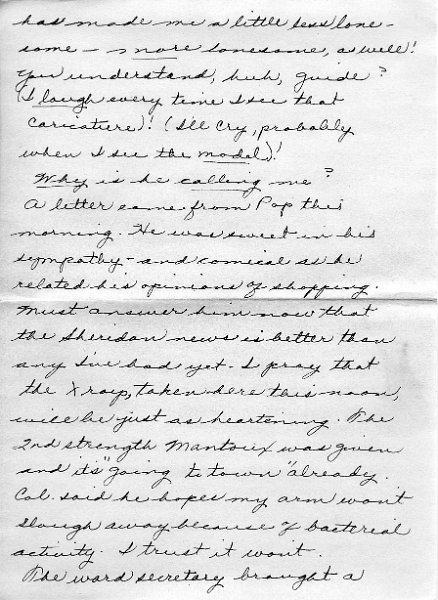 has made me a little less lone-
some – & more lonesome, as well!
You understand, huh, guide?
(I laugh every time I see that
caricature)! (I'll cry, probably
when I see the model)!
Why is he calling me?
A letter came from Pop this
morning. He was sweet in his
sympathy – and comical as he
related his opinions of shopping.
Must answer him now that
the Sheridan news is better than
any I've had yet. I pray that
the X ray, taken here this noon,
will be just as heartening. The
2nd strength Mantoux was given
and it's "going to town" already.
Col. said he hopes my arm won't
slough away because of bacterial
activity. I trust it wont.
The ward secretary brought a